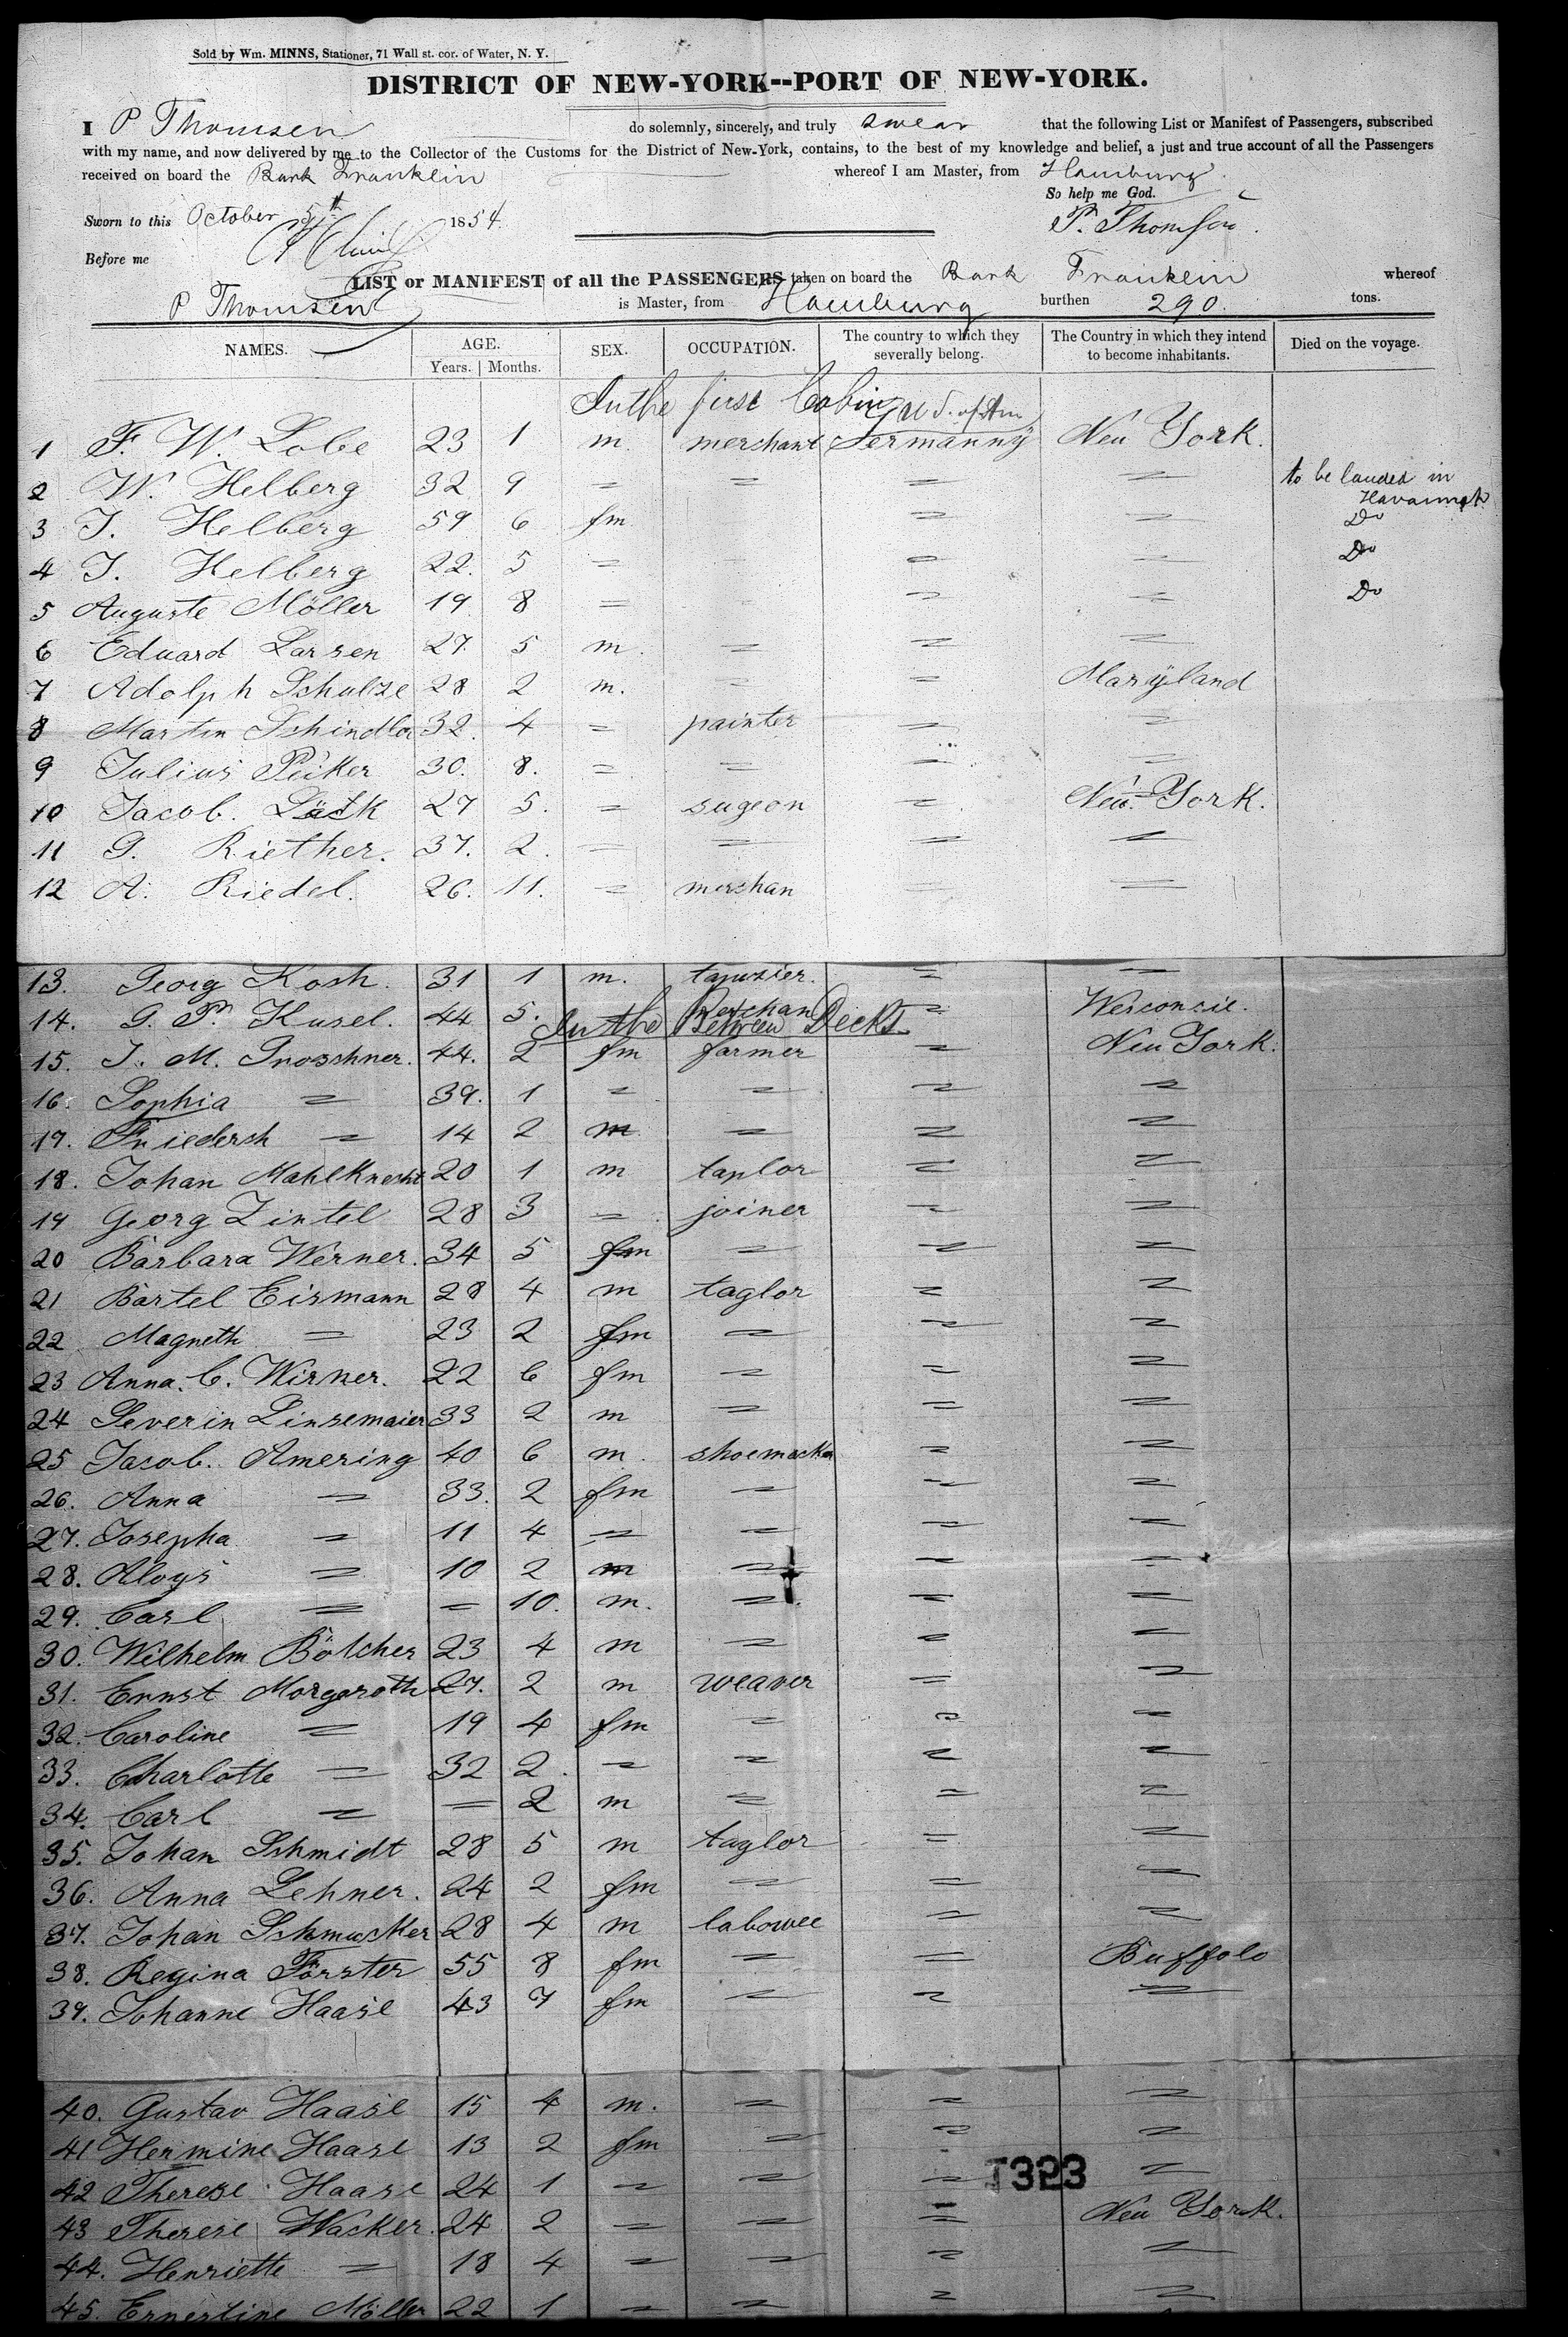 Sold by Wm. MINNS, Stationer, 71 Wall st. cor. of Water, N. Y.
DISTRICT OF NEW-YORK--PORT OF NEW-YORK.
I P Thomsen do solemnly, sincerely, and truly swear that the following List or Manifest of Passengers, subscribed
with my name, and now delivered by me to the Collector of the Customs for the District of New-York, contains, to the best of my knowledge and belief, a just and true account of all the Passengers
received on board the Bark Franklin whereof I am Master, from Hamburg.
So help me God.
Sworn to this October 5th 1854. P. Thomsen.
Before me
LIST or MANIFEST of all the PASSENGERS taken on board the Bark Franklin whereof
P Thomsen is Master, from Hamburg burthen 290. tons.
NAMES. AGE. Years. Months. SEX. OCCUPATION. The country to which they severally belong. The Country in which they intend to become inhabitants. Died on the voyage.
In the first Cabin U S. of Am
1 F. W. Lobe 23 1 m. merchant Germanny New York.
2 W. Helberg 32 9 = = = = to be landed in
3 J. Helberg 59 6 fm = = Do
4 J. Helberg 22. 5 = = = Do
5 Auguste Möller 19 8 = = = Do
6 Eduard Larsen 27. 5 m. = = =
7 Adolph Schulze 28 2 m. = = Maryland
8 Martin Schindler 32. 4 = painter = =
9 Julius Peiker 30. 8. = = = =
10 Jacob. 27 5. = sugeon = New York.
11 G. Riether. 37. 2. = = = =
12 A. Riedel. 26. 11. = mershan = =
13. Georg Kosh. 31 1 m. tapuzier. = =
14. G. P. Kusel. 44 5. Mershan = Wisconsie.
In the Between Decks
15. J. M. Proschner. 44. 2 fm farmer = New York.
16. Sophia = 39. 1 = = = =
17. Friedersh = 14 2 m = = =
18. Johan Mahlknecht 20 1 m taylor = =
19 Georg Zintel 28 3 = joiner = =
20 Barbara Werner. 34 5 fm = = =
21 Bartel Eismann 28 4 m taglor = =
22 Magneth = 23 2 fm = = =
23 Anna. C. Wirner. 22 6 fm = = =
24 Severin Linsemaier 33 2 m = = =
25 Jacob. Amering 40 6 m. shoemacker = =
26. Anna = 33. 2 fm = = =
27. Josepha = 11 4 = = = =
28. Aloys = 10 2 m = = =
29. Carl = = 10. m. = = =
30. Wilhelm Bötcher 23 4 m = = =
31. Ernst Morgeroth 27. 2 m weaver = =
32. Caroline = 19 4 fm = = =
33. Charlotte = 32 2. = = = =
34. Carl = = 2 m = = =
35. Johan Schmidt 28 5 m taglor = =
36. Anna Lehner. 24 2 fm = = =
37. Johan Schmucker 28 4 m labowee = =
38. Regina Förster 55 8 fm = = Buffolo
39. Johanne Haase 43 7 fm = = =
40. Gustav Haase 15 4 m. = = =
41 Hermine Haase 13 2 fm = = =
42 Therese Haase 24 1 = = = =
T323
43 Therese Wacker. 24 2 = = = New York.
44. Henriette = 18 4 = = = =
45. Ernestine Möller 22 1 = = = =